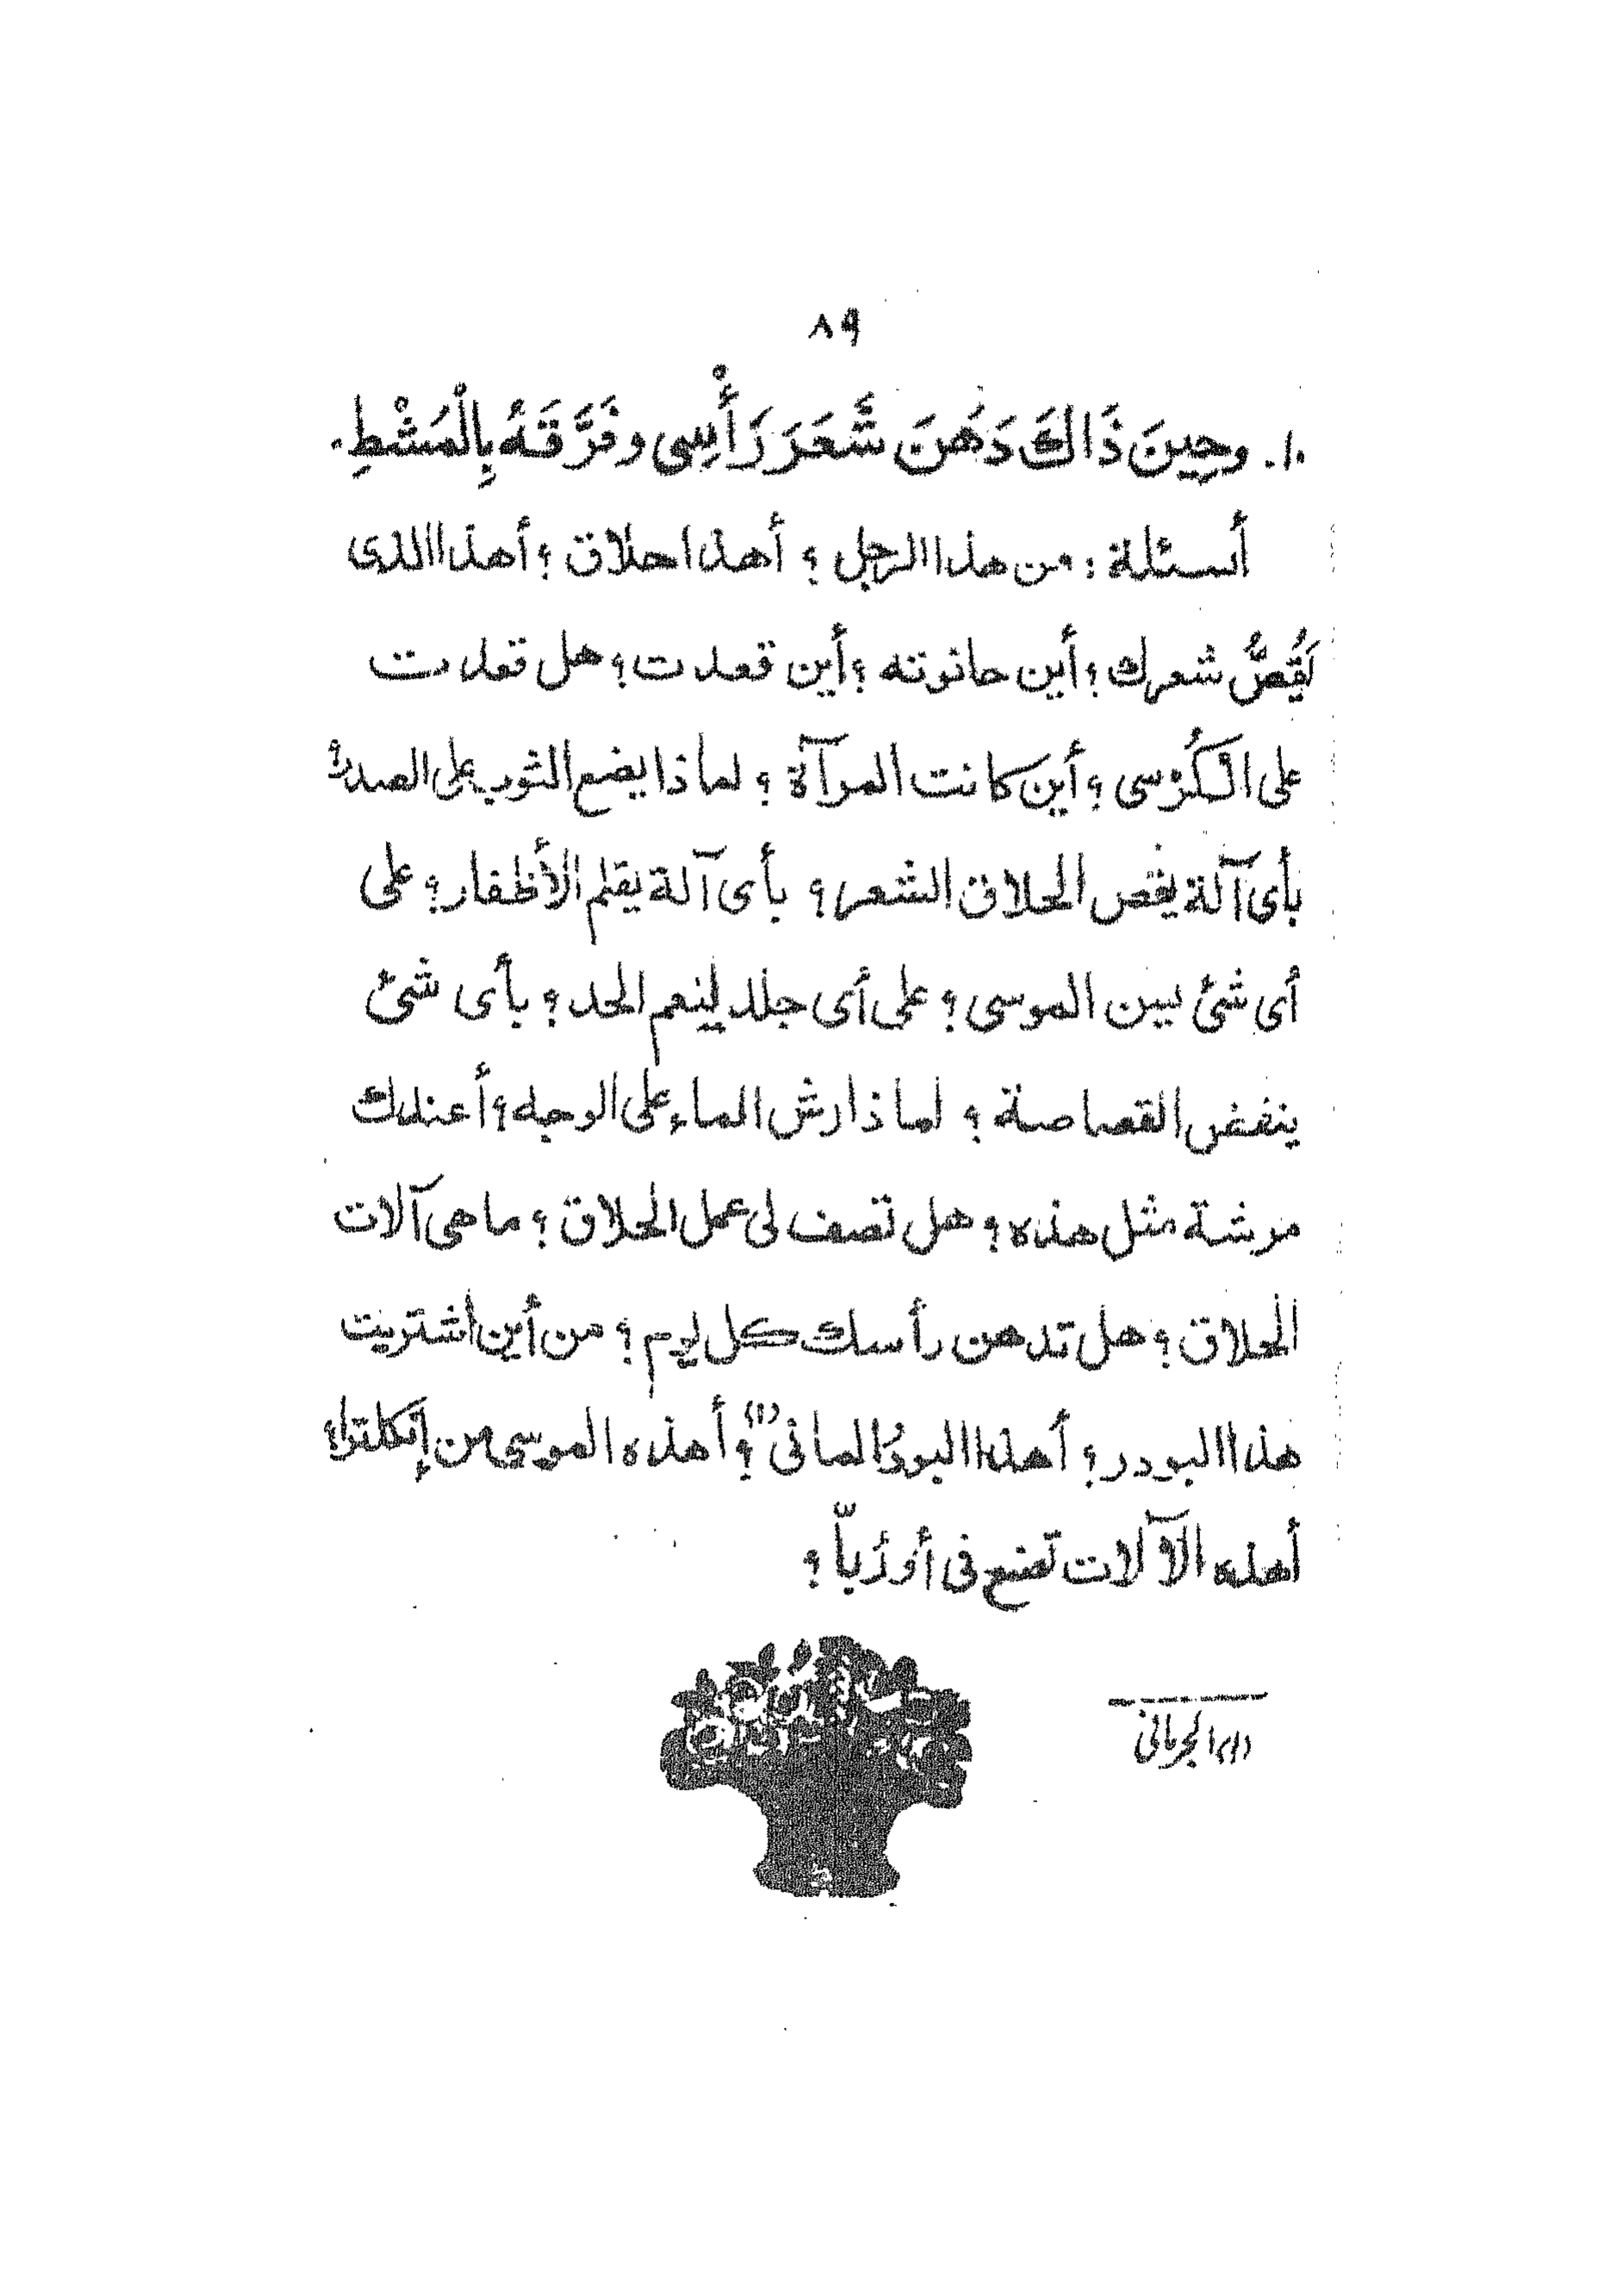 ٨٩
١٠. وحِينَ ذَاكَ دَهَنَ شَعَرَ رَأْسِى وفَرَّقَهُ بِالْمَشْطِ.
أسئلة : من هذا الرجل ؟ أهذا حلاق ؟ أهذا الذى
يَقُصُّ شعرك ؟ أين حانوته ؟ أين قعدت ؟ هل قعدت
على الكُرْسى ؟ أين كانت المرآة ؟ لماذا يضع الثوب على الصدر ؟
بأى آلة يقص الحلاق الشعر ؟ بأى آلة يقلم الأظفار ؟ على
أى شئ يسن الموسى ؟ على أى جلد لينعم الحد ؟ بأى شئ
ينفض القصاصة ؟ لماذا رش الماء على الوجه ؟ أعندك
مرشة مثل هذه ؟ هل تصف لى عمل الحلاق ؟ ما هى آلات
الحلاق ؟ هل تدهن رأسك كل يوم ؟ من أين اشتريت
هذا البودر ؟ أهذا البودُ المانى (١) ؟ أهذه الموسى من إنكلترا ؟
أهذه الآلات تصنع فى أورُبّا ؟
(١) الجرمانى